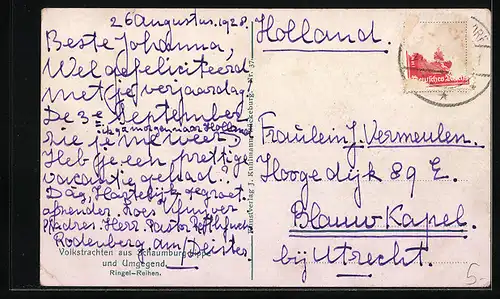 26 Augustus. 1928.
Beste Johanna,
Wel gefeliciteerd
met je verjaardag.
De 3e September
ik ga morgen naar Holland
zie je me weer.
Heb je een prettige
vacantie gehad?
Dag, Hartelijk gegroet
afzender.
p/adres. Herr Pastor
Rodenberg am Deister
Volkstrachten aus Schaumburg-Lippe
und Umgegend.
Ringel-Reihen.
Holland.
Fräulein J. Vermeulen.
Hoogedijk 89 E.
Blauw-Kapel.
bij Utrecht.
5-